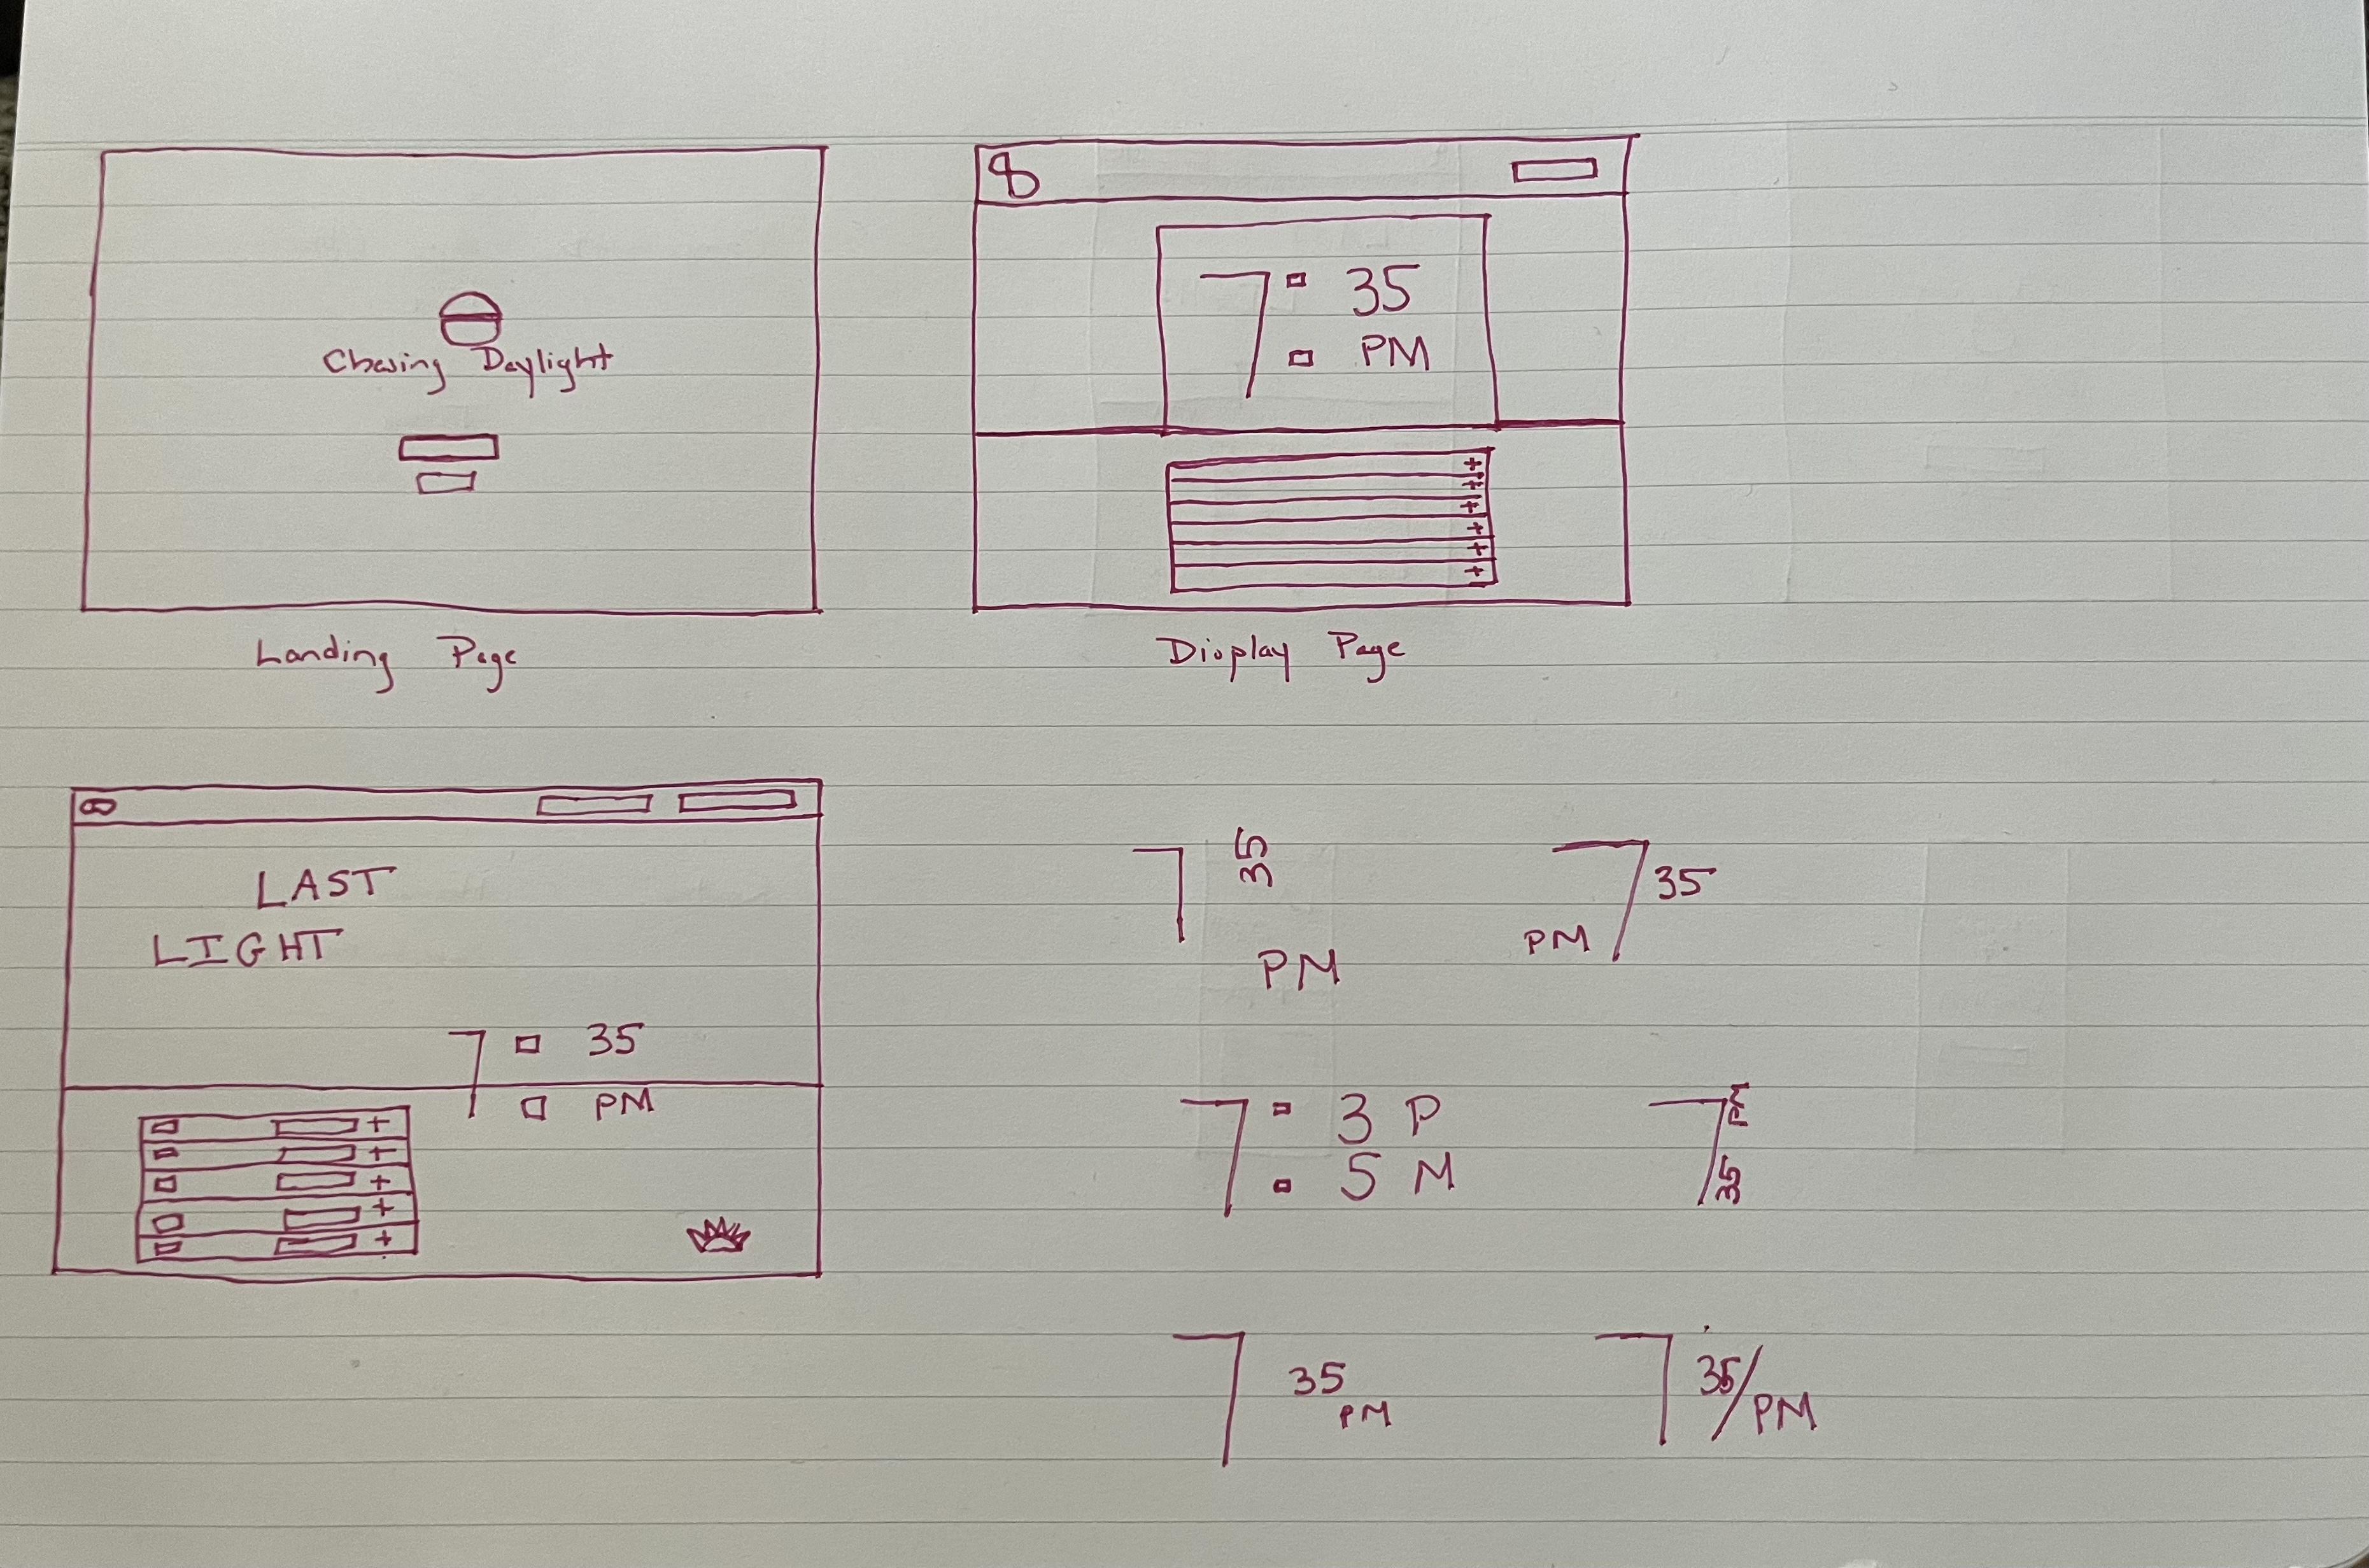 Chasing Daylight
Landing Page
8
7 35
PM
+
+
+
+
+
+
Display Page
LAST
LIGHT
7 35
PM
+
+
+
+
+
7 35
PM
7 35
PM
7 3 P
5 M
7 PM
35
7 35
PM
7 35/
PM